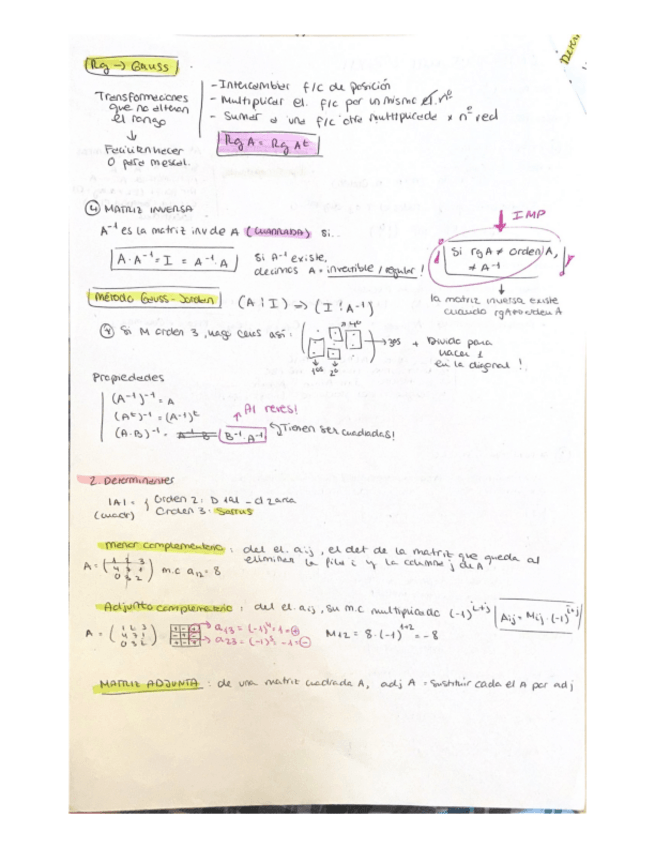 Rg → Gauss
Transformaciones
que no alteran
el rango
↓
- Intercambiar f/c de posición
- Multiplicar el. f/c por un mismo nº
- Sumar a una f/c otra multiplicada x nº real
Rg A = Rg Aᵗ
④ MATRIZ INVERSA
A⁻¹ es la matriz inv de A (CUADRADA) si..
A · A⁻¹ = I = A⁻¹ · A
Si A⁻¹ existe,
decimos A = invertible / regular!
IMP
Si rg A ≠ orden A,
∄ A⁻¹
↓
la matriz inversa existe
cuando rg A = orden A
Método Gauss-Jordan (A ¦ I) ⇒ (I ¦ A⁻¹)
Si M orden 3, hago ceros así:
1ºs 2º → 3ºs + Divido para
hacer 1
en la diagonal!
Propiedades
(A⁻¹)⁻¹ = A
(Aᵗ)⁻¹ = (A⁻¹)ᵗ
Al reves!
(A·B)⁻¹ = B⁻¹·A⁻¹
Tienen ser cuadradas!
2. Determinantes
|A| = { Orden 2:
(cuadr) Orden 3: Sarrus
Menor complementario: del el. aij, el det de la matriz que queda al
eliminar la fila i y la columna j de A
A = m.c a₁₂ = 8
Adjunto complementario: del el. aij, su m.c multiplicado (-1)ⁱ⁺ʲ Aij = Mij · (-1)ⁱ⁺ʲ
A = (1 2 3
4 3 1
0 3 2)
+ - +
- + -
+ - +
a₁₃ = (-1)⁴ = 1 = +
M₁₂ = 8 · (-1)¹⁺² = -8
MATRIZ ADJUNTA: de una matriz cuadrada A, adj A = sustituir cada el A por adj